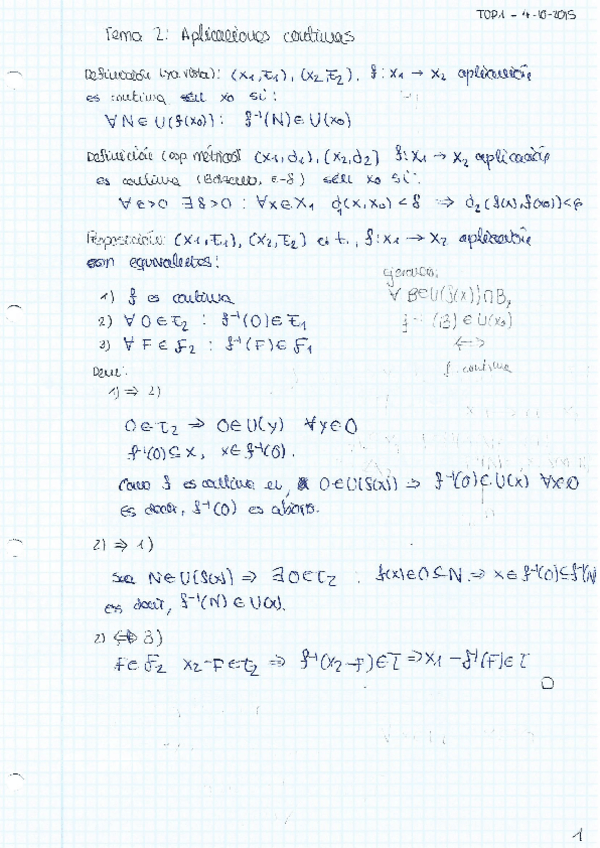 TOP1 - 4-10-2015
Tema 2: Aplicaciones continuas
Definición (ya vista): (X1,τ1), (X2,τ2). f: X1 → X2 aplicación
es continua en x0 si:
∀N∈U(f(x0)): f⁻¹(N)∈U(x0)
Definición (esp. métricos) (X1,d1), (X2,d2) f: X1 → X2 aplicación
es continua (ε-δ) en x0 si:
∀ε>0 ∃δ>0 : ∀x∈X1 d1(x,x0)<δ ⇒ d2(f(x),f(x0))<ε
Proposición: (X1,τ1), (X2,τ2) e.t., f: X1 → X2 aplicación
son equivalentes:
ejercicio:
∀B∈U(f(x))∩B2
f⁻¹(B)∈U(x0)
<->
f continua
1) f es continua
2) ∀O∈τ2 : f⁻¹(O)∈τ1
3) ∀F∈F2 : f⁻¹(F)∈F1
Dem:
1) ⇒ 2)
O∈τ2 ⇒ O∈U(y) ∀y∈O
f⁻¹(O)⊆X, x∈f⁻¹(O).
Como f es continua en, O∈U(f(x)) ⇒ f⁻¹(O)∈U(x) ∀x∈O
es decir, f⁻¹(O) es abierto.
2) ⇒ 1)
Sea N∈U(f(x)) ⇒ ∃O∈τ2 : f(x)∈O⊆N ⇒ x∈f⁻¹(O)⊆f⁻¹(N
es decir, f⁻¹(N)∈U(x).
2) ⇔ 3)
F∈F2 X2-F∈τ2 ⇒ f⁻¹(X2-F)∈τ ⇒ X1-f⁻¹(F)∈τ
□
1